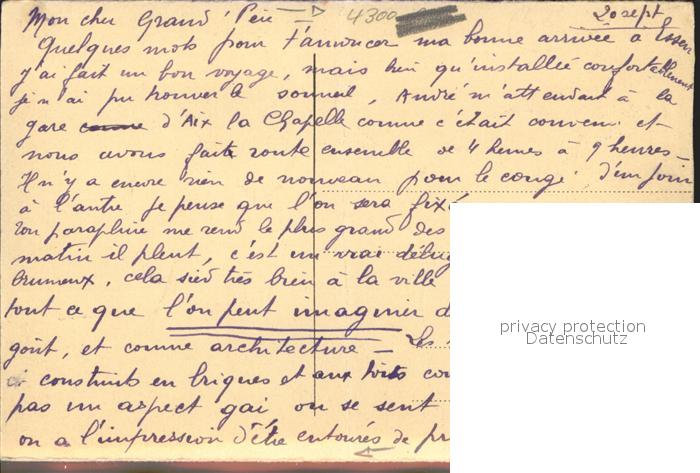 20 sept
Mon cher Grand' Père 4300
Quelques mots pour t'annoncer ma bonne arrivée à Essen
j'ai fait un bon voyage, mais bien qu'installée confortablement
je n'ai pu trouver le sommeil, André m'attendait à la
gare d'Aix la Chapelle comme c'était convenu et
nous avons fait route ensemble de 4 heures à 9 heures –
Il n'y a encore rien de nouveau pour le congé. D'un jour
à l'autre je pense que l'on sera fixé
ton parapluie me rend le plus grand des
matin il pleut, c'est un vrai
brumeux, cela sied très bien à la ville
tout ce que l'on peut imaginer
goût, et comme architecture – Les
construits en briques et aux toits
pas un aspect gai, on se sent
on a l'impression d'être entourés de
privacy protection
Datenschutz